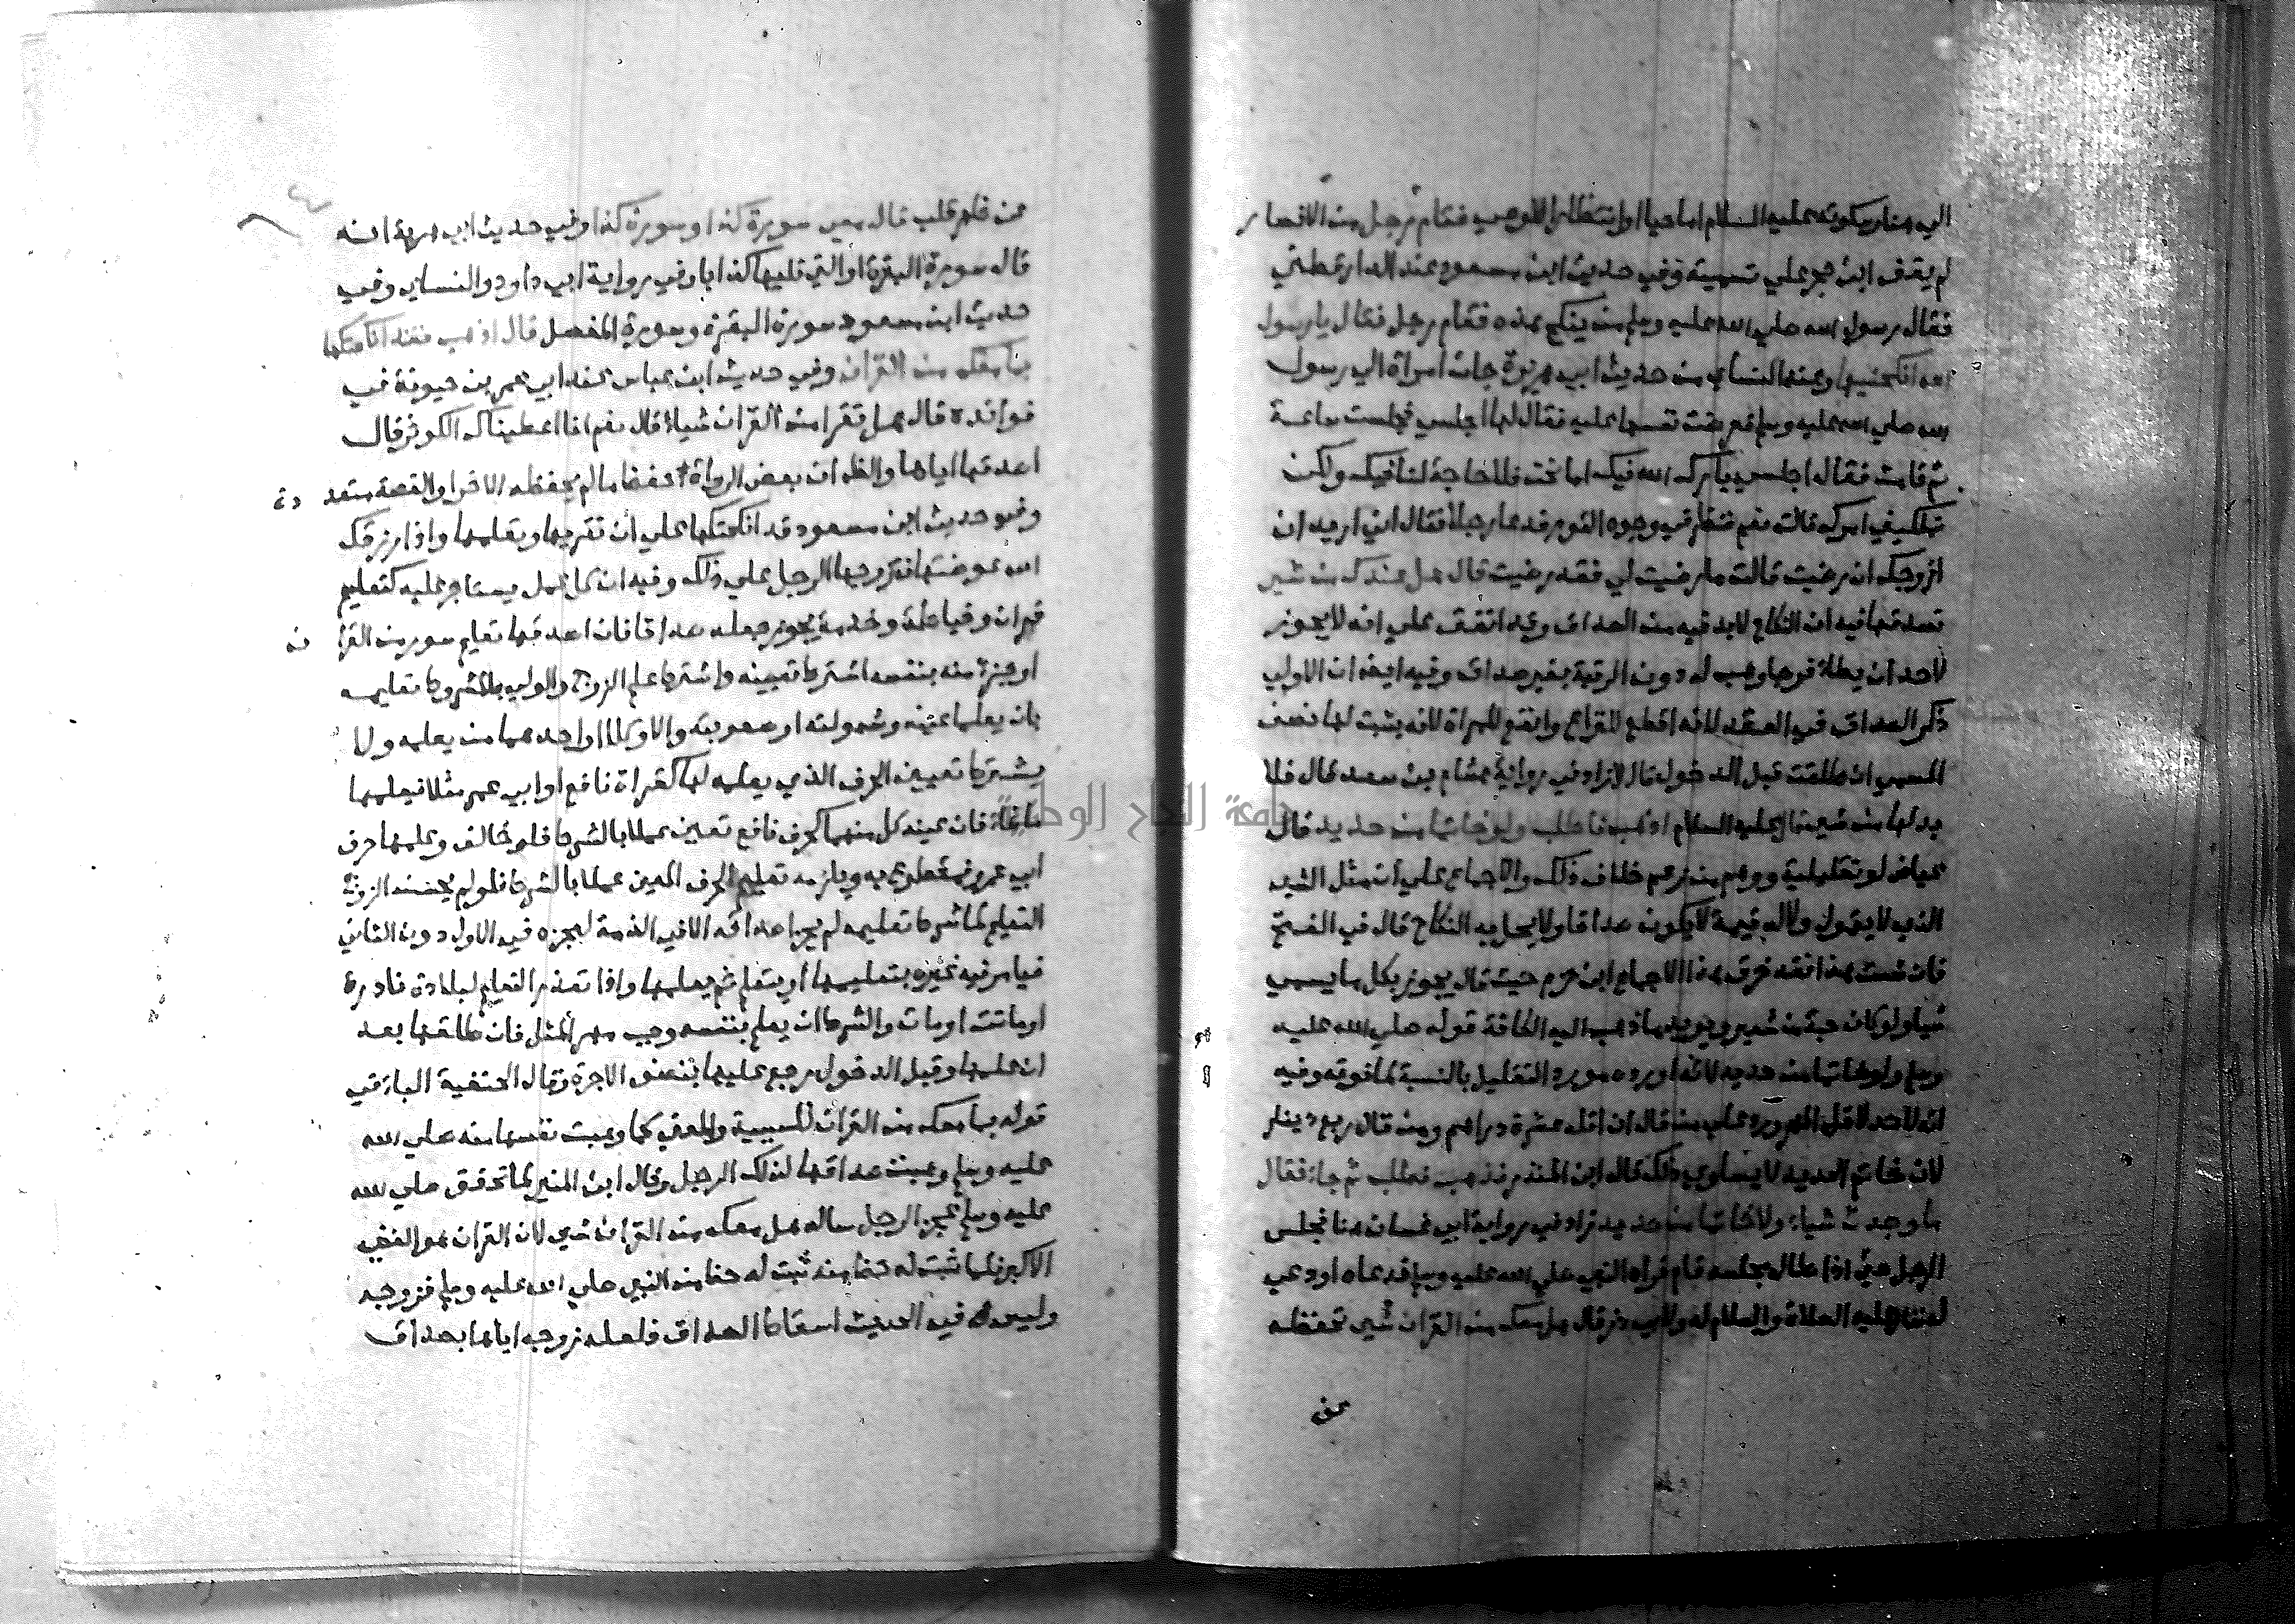 اليه هنا وسكوته عليه السلام اما حيا او انتظارا للوحي فقام رجل من الانصار
لم يقف ابن حجر علي تسميته وفي حديث ابن مسعود عند الدارقطني
فقال رسول الله صلي الله عليه وسلم من ينكح هذه فقام رجل فقال يا رسول
الله انكحنيها وعند النساي من حديث ابي هريرة جات امراة الي رسول
الله صلي الله عليه وسلم فعرضت نفسها عليه فقال لها اجلسي فجلست ساعة
ثم قامت فقال اجلسي بارك الله فيك اما نحن فلا حاجة لنا فيك ولكن
تملكيني امرك قالت نعم فنظر في وجوه القوم فدعا رجلا فقال اني اريد ان
ازوجك ان رضيت قالت ما رضيت لي فقد رضيت قال هل عندك من شي
تصدقها فيه ان النكاح لابد فيه من الصداق وقد اتفق علي انه لا يجوز
لاحد ان يطا فرجا وهب له دون الرقبة بغير صداق وفيه ايضا ان الاولي
ذكر الصداق في العقد لانه اقطع للنزاع وانفع للمراة لانه يثبت لها نصف
المسمي ان طلقت قبل الدخول قال زاد في رواية هشام بن سعد قال فلا
بد لها من شي قال عليه السلام اذهب فاطلب ولو خاتما من حديد قال
عياض لو تقليلية ووهم من زعم خلاف ذلك والاجماع علي ان مثل الشي
الذي لا يتمول ولا له قيمة لا يكون صداقا ولا يحل به النكاح قال في الفتح
فان ثبت هذا فقد خرق هذا الاجماع ابن حزم حيث قال يجوز بكل ما يسمي
شيا ولو كان حبة من شعير ويويد ما ذهب اليه الكافة قوله صلي الله عليه
وسلم ولو خاتما من حديد لانه اورده مورد التقليل بالنسبة لما فوقه وفيه
انه لا حد لاقل المهر ورد علي من قال ان اقله عشرة دراهم ومن قال ربع دينار
لان خاتم الحديد لا يساوي ذلك قاله ابن المنذر فذهب فطلب ثم جا فقال
ما وجدت شيا ولا خاتما من حديد زاد في رواية ابي غسان هنا فجلس
الرجل حتي اذا طال مجلسه قام فراه النبي صلي الله عليه وسلم فدعاه او دعي
له فقال عليه الصلاة والسلام له قال هل معك من القران شي تحفظه
عن
عن ظهر قلب قال معي سورة كذا وسورة كذا وفي حديث ابي هريرة انه
قال سورة البقرة او التي تليها كذا باو في رواية ابي داود والنساي وفي
حديث ابن مسعود سورة البقرة وسورة المفصل قال اذهب فقد انكحتكها
بما معك من القران وفي حديث ابن عباس عند ابي عمر بن حيوية في
فوائده قال هل تقرا من القران شيا قال نعم انا اعطيناك الكوثر قال
اصدقها اياها والظاهر ان بعض الرواة حفظ ما لم يحفظه الاخر او القصة متعددة
وفي حديث ابن مسعود قد انكحتكها علي ان تقريها وتعلمها واذا رزقك
الله عوضتها فتزوجها الرجل علي ذلك وفيه ان كل عمل يستاجر عليه كتعليم
قران وخياطة وخدمة يجوز جعله صداقا فان اصدقها تعليم سور من القران
او جز منه بنفسه اشترط تعيينه واشترط علم الزوج والولي بالمشروط تعليمه
بان يعلما عينه وسهولته او صعوبته والا وكلا او احدهما من يعلمه ولا
يشترط تعيين الحرف الذي يعلمه لها كقراة نافع او ابي عمر مثلا فيعلمها
ما شا فان عينه كل منهما كحرف نافع تعين عملا بالشرط فلو خالف وعلمها حرف
ابي عمرو فمتطوع به ويلزمه تعليم الحرف المعين عملا بالشرط فلو لم يحسن الزوج
التعليم لما شرط تعليمه لم يجز اصداقه الا في الذمة لعجزه في الاول دون الثاني
فيامر فيه غيره بتعليمها او يتعلم ثم يعلمها واذا تعذر التعليم لبلادة نادرة
او ماتت او مات والشرط ان يعلم بنفسه وجب مهر المثل فان طلقها بعد
ان علمها وقبل الدخول رجع عليها بنصف الاجرة وقال الحنفية البا في
قوله بما معك من القران للسببية والمعني لما وهبت نفسها منه صلي الله
عليه وسلم وهبت صداقها لذلك الرجل وقال ابن المنير لما تحقق صلي الله
عليه وسلم عجز الرجل ساله هل معك من القران شي لان القران هو الغني
الاكبر فلما ثبت له حظ منه ثبت له حظ من النبي صلي الله عليه وسلم فزوجه
وليس في الحديث اسقاط الصداق فلعله زوجه اياها بصداق
جامعة النجاح الوطنية